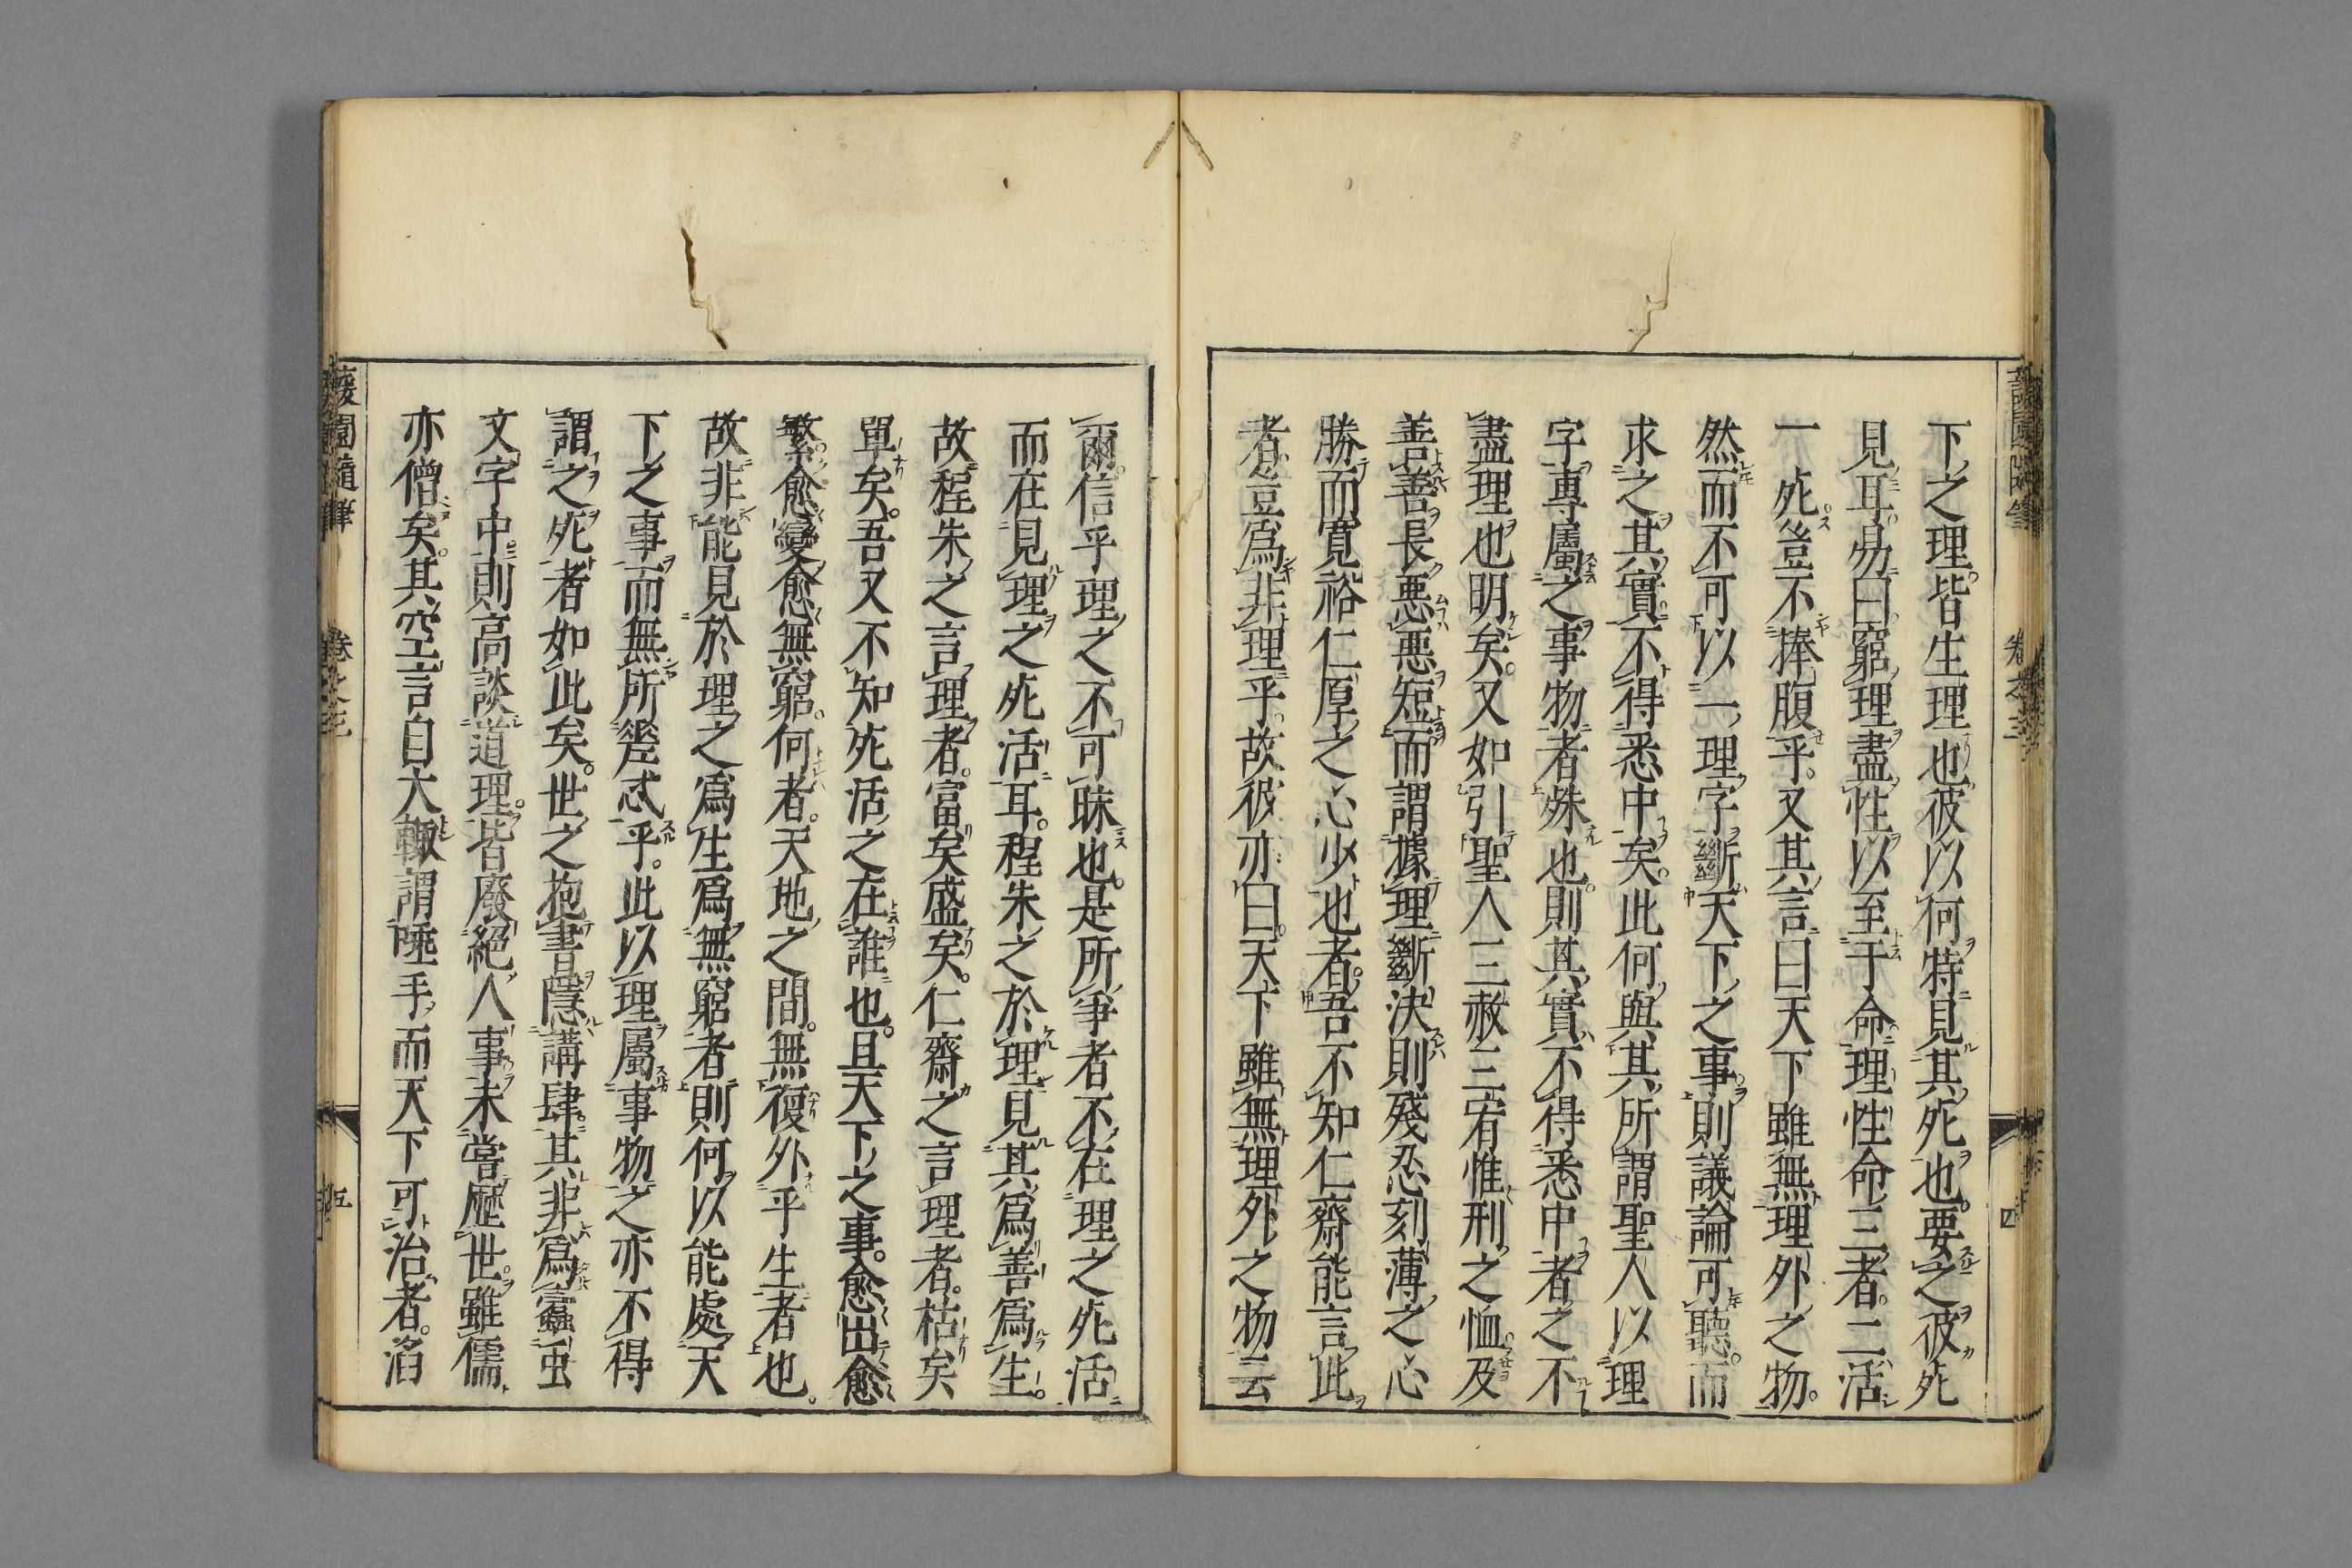 下之理皆生理也彼以何特見其死也。要之彼死
見耳。易曰窮理盡性以至于命理性命三者。二活
一死。豈不捧腹乎。又其言曰天下雖無理外之物。
然而不可以一理字斷天下之事則議論可聽。而
求之其實不得悉中矣。此何與其所謂聖人以理
字專屬之事物者殊也。則其實不得悉中者之不
盡理也明矣。又如引聖人三赦三宥惟刑之恤及
善善長惡惡短而謂據理斷決則殘忍刻薄之心
勝而寬裕仁厚之心少也者。吾不知仁齋能言此
者。豈爲非理乎。故彼亦曰。天下雖無理外之物云
爾。信乎理之不可昧也。是所爭者不在理之死活
而在見理之死活耳。程朱之於理見其爲善爲生。
故程朱之言理者。富矣盛矣。仁齋之言理者。枯矣
單矣。吾又不知死活之在誰也。且天下之事。愈出愈
繁愈變愈無窮。何者。天地之間。無復外乎生者也。
故非能見於理之爲生爲無窮者則何以能處天
下之事而無所差忒乎。此以理屬事物之亦不得
謂之死者如此矣。世之抱書隱講肆。其非爲蠹虫
文字中。則高談道理。皆廢絕人事未嘗歷世。雖儒
亦僧矣。其空言自大輙謂唾手而天下可治者。滔
蘐園隨筆
卷之三
四
蘐園隨筆
卷之三
五